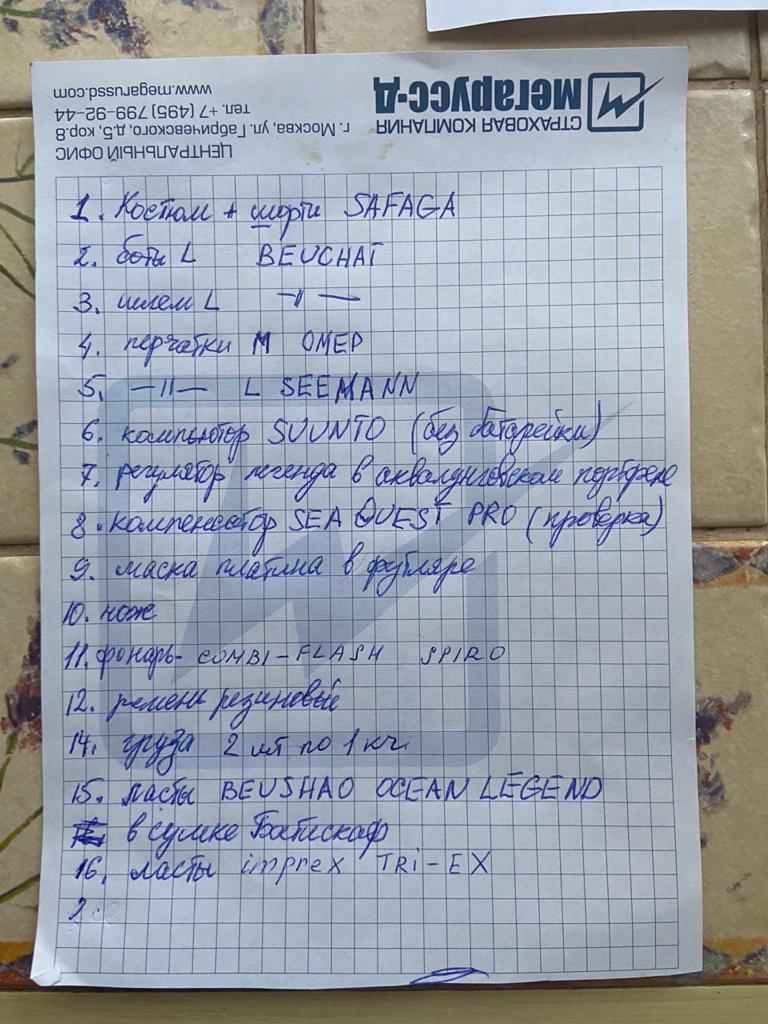 СТРАХОВАЯ КОМПАНИЯ
мегарусс-д
ЦЕНТРАЛЬНЫЙ ОФИС
г. Москва, ул. Габричевского, д.5, кор.8
тел. +7 (495) 799-92-44
www.megarussd.com
1. Костюм + шорты SAFAGA
2. боты L BEUCHAT
3. шлем L —||—
4. перчатки M ОМЕР
5. —||— L SEEMANN
6. компьютор SUUNTO (без батарейки)
7. регулятор легенда в аквалунговском портфеле
8. компенсатор SEA QUEST PRO (проверка)
9. маска платина в футляре
10. нож
11. фонарь- COMBI-FLASH SPIRO
12. ремень резиновый
14. груза 2 шт по 1 кг.
15. ласты BEUSHAO OCEAN LEGEND
в сумке Батискаф
16. ласты imprex TRi-EX
2.